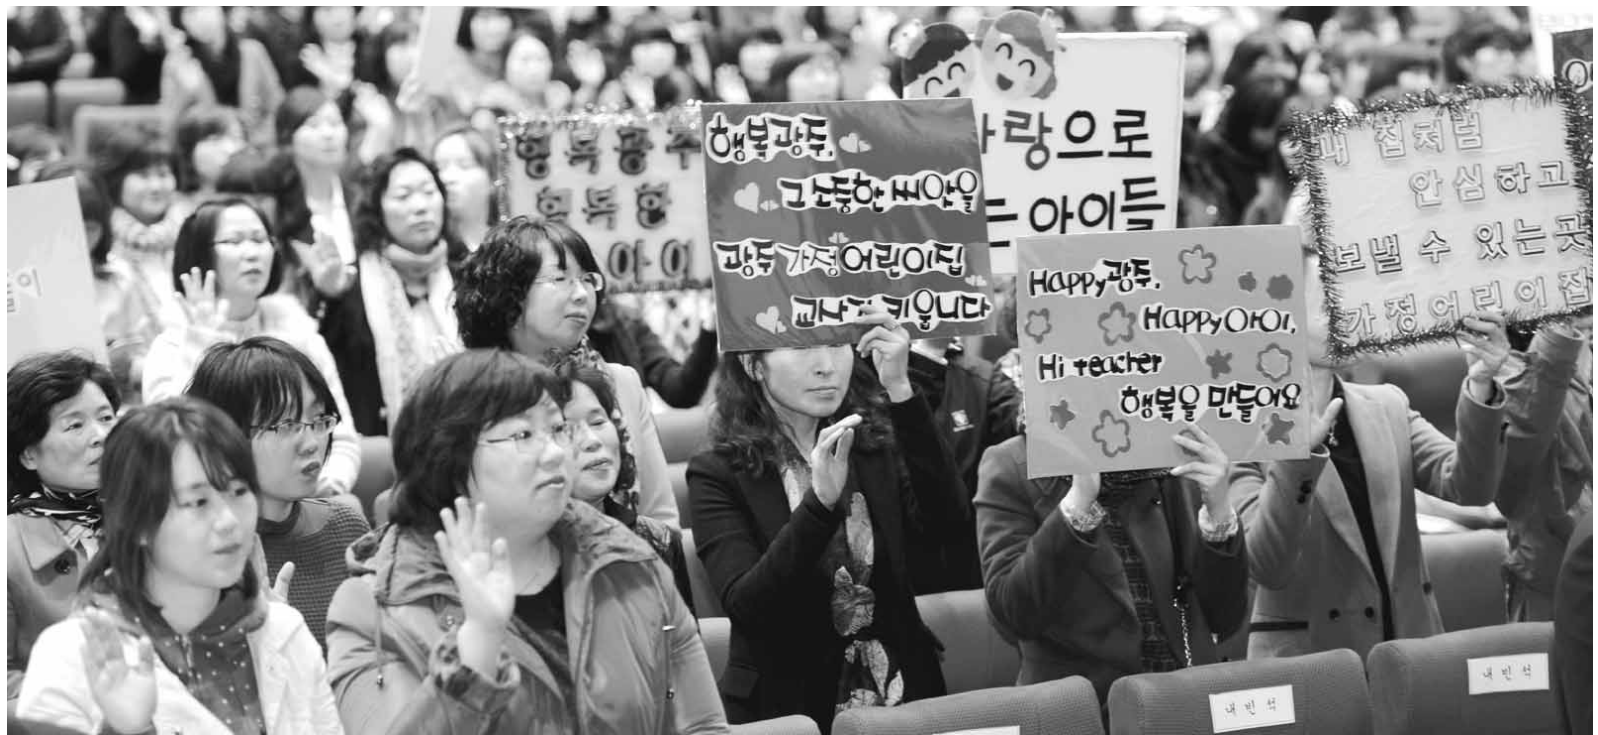 행복광주
행복한
아이
행복광주,
그 소중한 씨앗을
광주 가정어린이집
교사가 키웁니다
사랑으로
는 아이들
Happy광주,
Happy아이,
Hi teacher
행복을 만들어요
내 집처럼
안심하고
보낼 수 있는 곳
가정어린이집
내빈석
내빈석